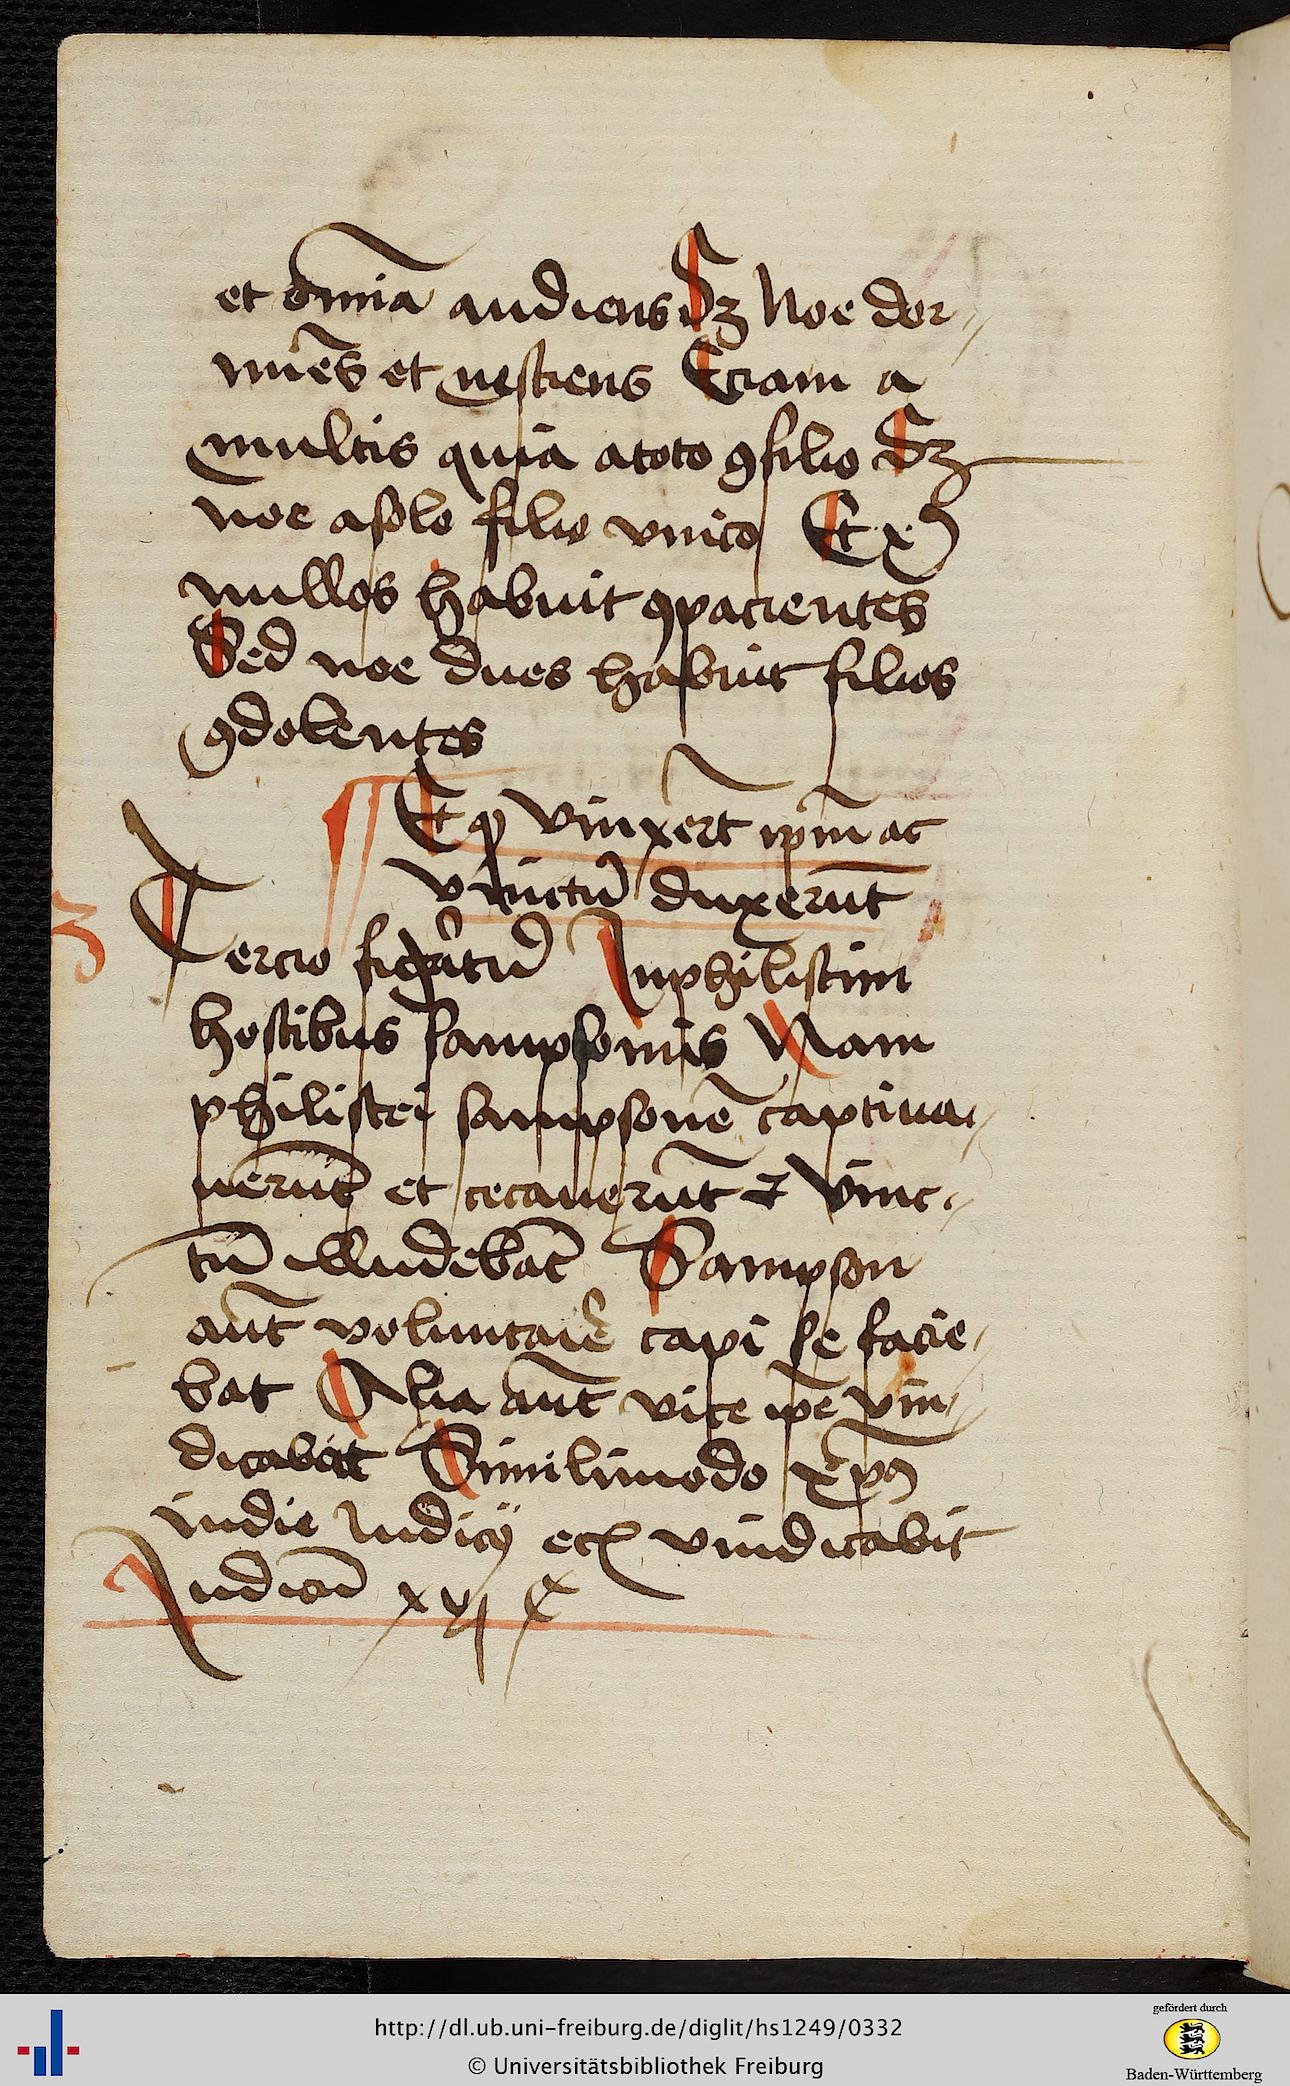 et om̅ia audiens Sꝫ Noe dor⸗
mie̅s et nesciens Eciam a
multis quia a toto ꝯsilio Sꝫ
noe a solo filio vnico Et xꝰ
nullos habuit ꝯpacientes
Sed noe duos habuit filios
ꝯdolentes
Et qꝫ vinxer̅t ip̅m ac
vinctu̅ duxeru̅t
3 Tercio figͣtu̅ In philistim
hostibus sampsonis Nam
philistei sampsone̅ captiua⸗
ueru̅t et cecaueru̅t ⁊ vinc⸗
tu̅ illudeba̅t Sampson
au̅t voluntarie̅ capi se facie⸗
bat Alia au̅t vice ip̅e vin⸗
dicabat Simili modo xp̅ꝰ
in die Iudicij vindicabit
Iudicu̅ xvj
http://dl.ub.uni-freiburg.de/diglit/hs1249/0332
© Universitätsbibliothek Freiburg
gefördert durch
Baden-Württemberg